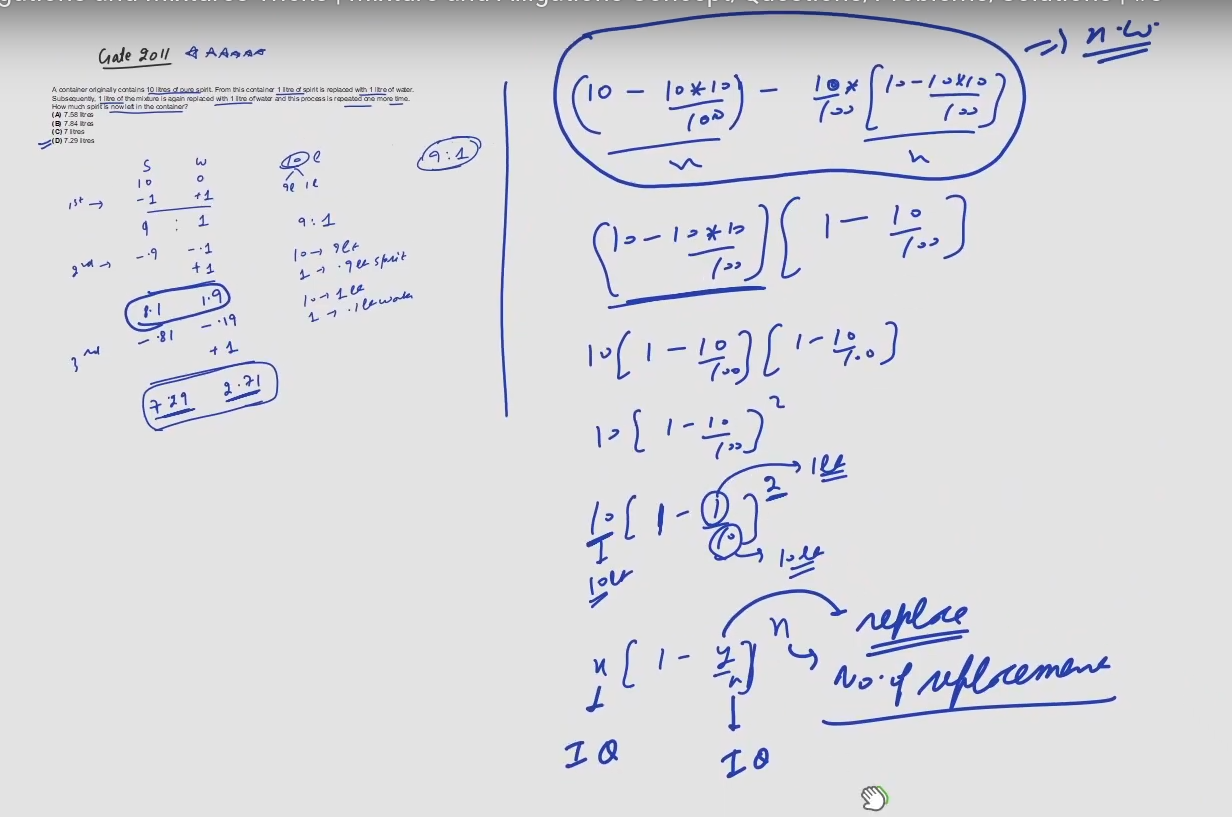 Gate 2011
A container originally contains 10 litres of pure spirit. From this container 1 litre of spirit is replaced with 1 litre of water.
Subsequently, 1 litre of the mixture is again replaced with 1 litre of water and this process is repeated one more time.
How much spirit is now left in the container?
(A) 7.58 litres
(B) 7.84 litres
(C) 7 litres
(D) 7.29 litres
S W
10 0
1st → -1 +1
9 : 1
2nd → -.9 -.1
+1
8.1 1.9
3rd -.81 -.19
+1
7.29 2.71
10 l
9l 1l
9:1
9:1
10 → 9lt
1 → .9lt spirit
10 → 1lt
1 → .1lt water
(10 - 10*10/100) - 10/100 * [10 - 10*10/100] ⇒ n.w.
n n
[10 - 10*10/100] [1 - 10/100]
10[1 - 10/100] [1 - 10/100]
10[1 - 10/100]²
10[1 - 1/10]² → 1lt
I → 10lt
10lt
x[1 - y/x]ⁿ → replace
→ No. of replacement
I Q I Q